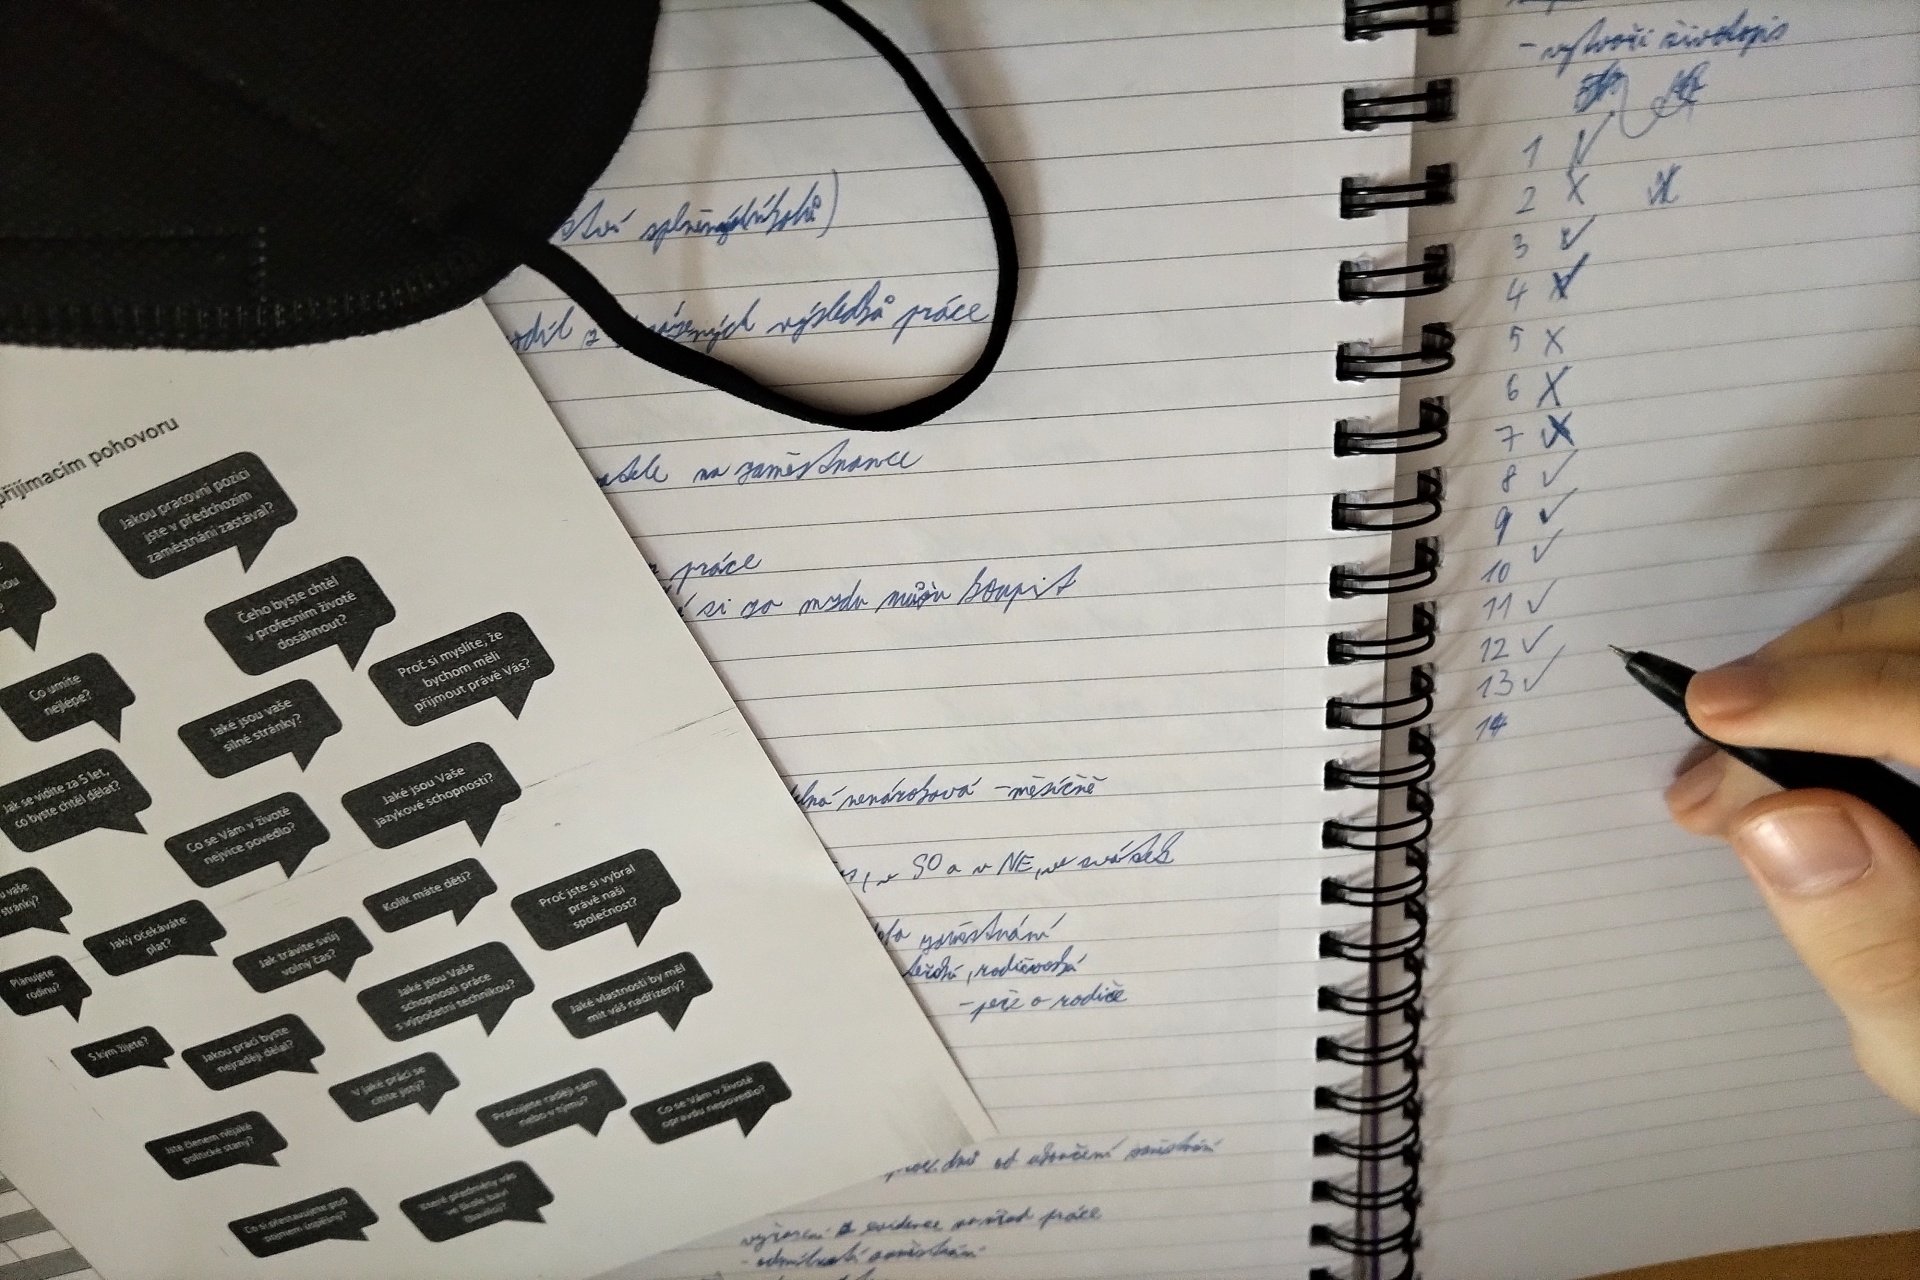 přijímacím pohovoru
Jakou pracovní pozici
jste v předchozím
zaměstnání zastával?
Čeho byste chtěl
v profesním životě
dosáhnout?
Proč si myslíte, že
bychom měli
přijmout právě Vás?
Co umíte
nejlépe?
Jaké jsou vaše
silné stránky?
Jak se vidíte za 5 let,
co byste chtěl dělat?
Co se Vám v životě
nejvíce povedlo?
Jaké jsou Vaše
jazykové schopnosti?
vaše
stránky?
Jaký očekáváte
plat?
Kolik máte dětí?
Proč jste si vybral
právě naši
společnost?
Jak trávíte svůj
volný čas?
Plánujete
rodinu?
Jaké jsou Vaše
schopnosti práce
s výpočetní technikou?
Jaké vlastnosti by měl
mít váš nadřízený?
S kým žijete?
Jakou práci byste
nejraději dělal?
V jaké práci se
cítíte jistý?
Pracujete raději sám
nebo v týmu?
Co se Vám v životě
opravdu nepovedlo?
Jste členem nějaké
politické strany?
Co si představujete pod
pojmem úspěšný?
Které předměty vás
ve škole baví
(bavily)?
výsledků práce
na zaměstnance
práce
si za mzdu můžu koupit
nenároková - měsíčně
v SO a v NE, ve svátek
zaměstnání
, rodičovská
- péče o rodiče
od ukončení zaměstnání
vyřazení z evidence práce
zaměstnání
- vytvoří životopis
1 ✓
2 X
3 ✓
4
5 X
6 X
7 X
8 ✓
9 ✓
10 ✓
11 ✓
12 ✓
13 ✓
14